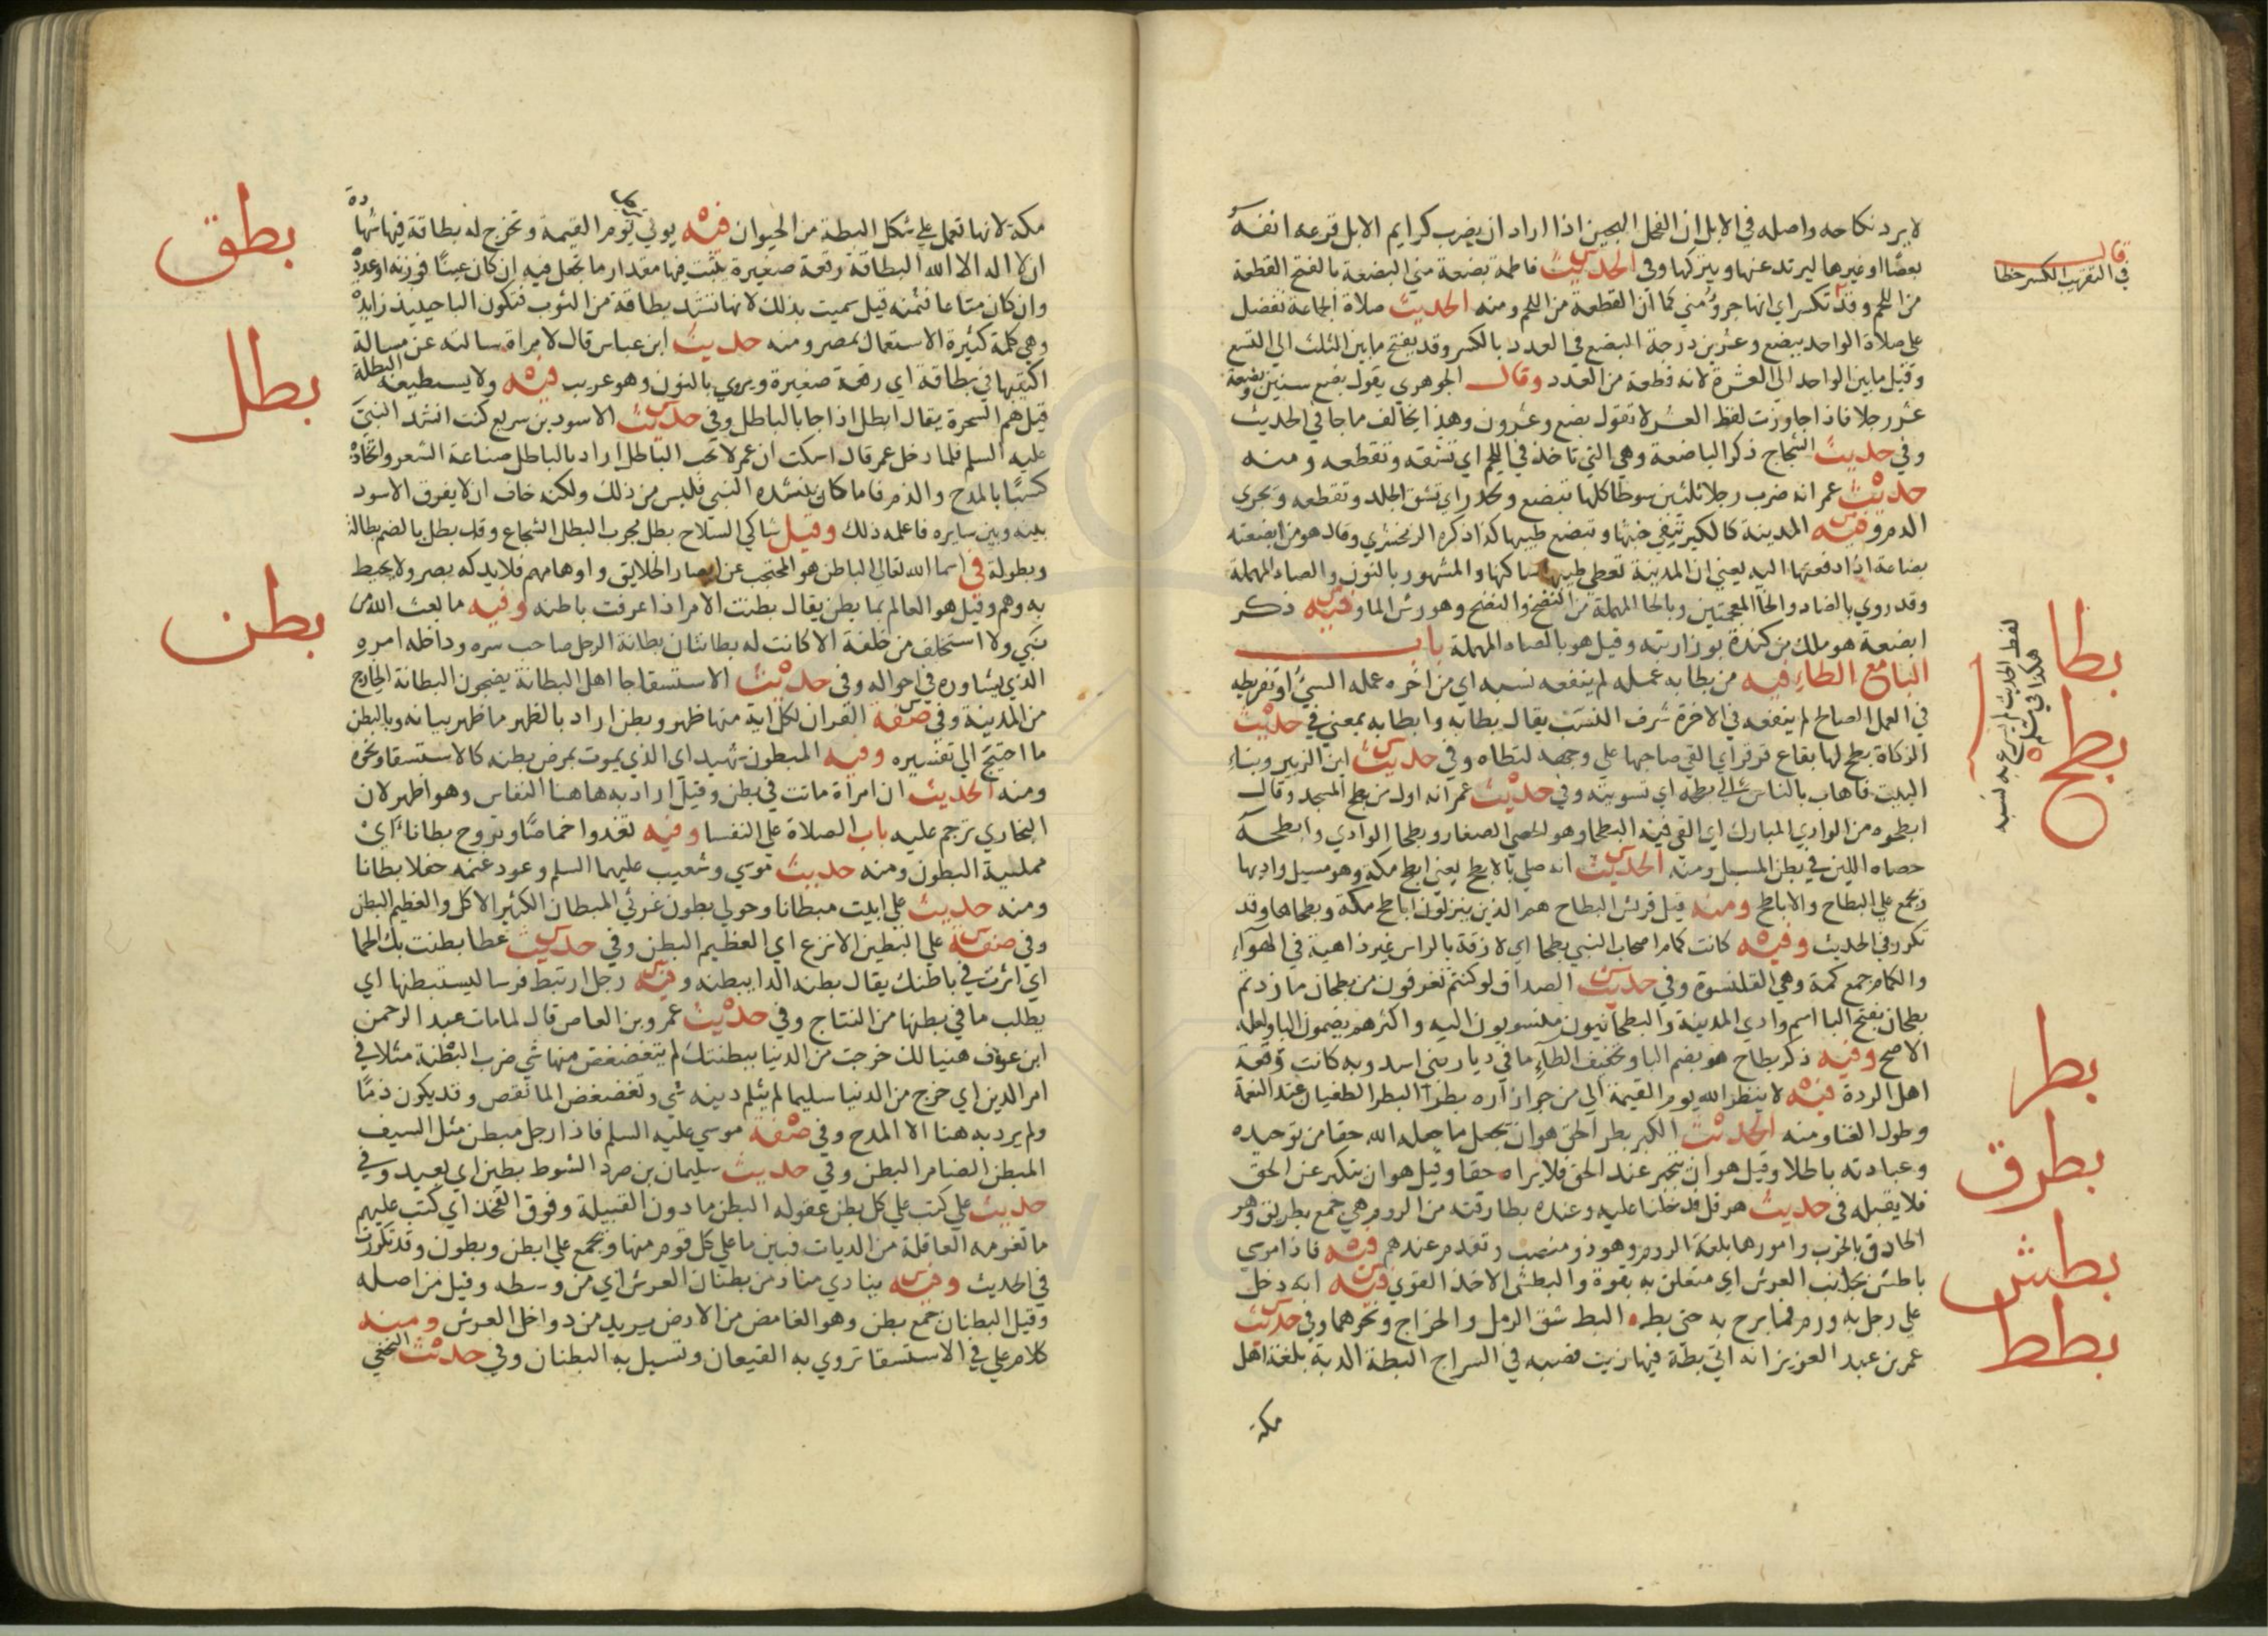 لا يرد نكاحه واصله في الابل ان الفحل الهجين اذا اراد ان يضرب كرايم الابل قرعه انفه
بعصًا او غيرها ليرتد عنها ويتركها وفي الحديث فاطمة بضعة مني البضعة بالفتح القطعة
قال في التقريب الكسر خطا
من اللحم وقد تكسر اي انها جزؤ مني كما ان القطعة من اللحم ومنه الحديث صلاة الجماعة تفضل
على صلاة الواحد ببضع وعشرين درجة البضع في العدد بالكسر وقد يفتح ما بين الثلث الى التسع
وقيل ما بين الواحد الى العشرة لانه قطعة من العدد وقال الجوهري يقول بضع سنين وبضعة
عشر رجلا فاذا جاوزت لفظ العشر لا تقول بضع وعشرون وهذا يخالف ما جا في الحديث
وفي حديث الشجاج ذكر الباضعة وهي التي تاخذ في اللحم اي تشقه وتقطعه ومنه
حديث عمر انه ضرب رجلا ثلثين سوطا كلها تبضع وتحدر اي تشق الجلد وتقطعه وتجري
الدم وفيه المدينة كالكير تنفي خبثها وتبضع طيبها كذا ذكره الزمخشري وقال هو من ابضعته
بضاعة اذا دفعتها اليه يعني ان المدينة تعطي طيبها ساكنها والمشهور بالنون والصاد المهملة
وقد روي بالضاد والخا المعجمتين وبالحا المهملة من النضخ والنضح وهو رش الما وفيه ذكر
ابضعة هو ملك من كندة بوزن ارنبة وقيل هو بالصاد المهملة باب
بطا
البا مع الطاء فيه من بطا به عمله لم ينفعه نسبه اي من اخره عمله السيئ او تفريطه
لفظ الحديث لم يسرع به نسبه
هكذا في مسلم
في العمل الصالح لم ينفعه في الاخرة شرف النسب يقال بطا به وابطا به بمعني في حديث
بطح
الزكاة بطح لها بقاع قرقر اي القي صاحبها على وجهه لتطاه وفي حديث ابن الزبير وبناء
البيت فاهاب بالناس الى بطحه اي تسويته وفي حديث عمر انه اول من بطح المسجد وقال
ابطحوه من الوادي المبارك اي القى فيه البطحا وهو الحصى الصغار وبطحا الوادي وابطحه
حصاه اللين في بطن المسيل ومنه الحديث انه صلى بالابطح يعني ابطح مكة وهو مسيل واديها
وتجمع على البطاح والاباطح ومنه قيل قريش البطاح هم الذين ينزلون اباطح مكة وبطحاها وقد
تكرر في الحديث وفيه كانت كمام اصحاب النبي بطحا اي لازقة بالراس غير ذاهبة في الهوآء
والكمام جمع كمة وهي القلنسوة وفي حديث الصداق لو كنتم تغرفون من بطحان ما زدتم
بطحان بفتح البا اسم وادي المدينة والبطحانيون منسوبون اليه واكثرهم يضمون البا ولعله
الاصح وفيه ذكر بطاح هو بضم البا وتخفيف الطآء ما في ديار بني اسد وبه كانت وقعة
بطر
اهل الردة فيه لا ينظر الله يوم القيمة الى من جر ازاره بطرا البطر الطغيان عند النعمة
وطول الغنا ومنه الحديث الكبر بطر الحق هو ان يجعل ما جعله الله حقا من توحيده
وعبادته باطلا وقيل هو ان يتجبر عند الحق فلا يراه حقا وقيل هو ان يتكبر عن الحق
بطرق
فلا يقبله في حديث هرقل فدخلنا عليه وعنده بطارقته من الروم هي جمع بطريق وهو
الحاذق بالحرب وامورها بلغة الروم وهو ذو منصب وتقدم عندهم فيه فاذا موسي
بطش
باطش بجانب العرش اي متعلق به بقوة والبطش الاخذ القوي فيه انه دخل
بطط
على رجل به ورم فما برح به حتى بطه البط شق الدمل والخراج ونحوهما وفي حديث
عمر بن عبد العزيز انه اتي بطة فيها زيت فصبه في السراج البطة الدبة بلغة اهل
مكة
مكة لانها تعمل على شكل البطة من الحيوان فيه يوتي يوم القيمة وتخرج له بطاقة فيها شهادة
بطق
ان لا اله الا الله البطاقة رقعة صغيرة يثبت فيها مقدار ما تجعل فيه ان كان عينًا فوزنه او عدده
وان كان متاعا فثمنه قيل سميت بذلك لانها تشد بطاقة من الثوب فتكون البا حينيذ زايدة
وهي كلمة كثيرة الاستعمال بمصر ومنه حديث ابن عباس قال لامراة سالته عن مسالة
بطل
اكتبيها في بطاقة اي رقعة صغيرة ويروي بالنون وهو غريب فيه ولا يستطيعه البطلة
قيل هم السحرة يقال ابطل اذا جا بالباطل وفي حديث الاسود بن سريع كنت انشد النبي
عليه السلم فلما دخل عمر قال اسكت ان عمر لا يحب الباطل اراد بالباطل صناعة الشعر واتخاذه
كسبًا بالمدح والذم فاما ما كان ينشده النبي فليس من ذلك ولكنه خاف ان لا يفرق الاسود
بينه وبين سايره فاعلمه ذلك وقيل شاكي السلاح بطل مجرب البطل الشجاع وقد بطل بالضم بطالة
بطن
وبطولة في اسما الله تعالى الباطن هو المحتجب عن ابصار الخلايق واوهامهم فلا يدركه بصر ولا يحيط
به وهم وقيل هو العالم بما بطن يقال بطنت الامر اذا عرفت باطنه وفيه ما بعث الله من
نبي ولا استخلف من خلفة الا كانت له بطانتان بطانة الرجل صاحب سره وداخله امره
الذي يشاوره في احواله وفي حديث الاستسقا جا اهل البطانة يضجون البطانة الخارج
من المدينة وفي صفة القران لكل اية منها ظهر وبطن اراد بالظهر ما ظهر بيانه وبالبطن
ما احتيج الى تفسيره وفيه المبطون شهيد اي الذي يموت بمرض بطنه كالاستسقا ونحوه
ومنه الحديث ان امراة ماتت في بطن وقيل اراد به هاهنا النفاس وهو اظهر لان
البخاري ترجم عليه باب الصلاة على النفسا وفيه تغدوا خماصًا وتروح بطانًا اي
ممتلية البطون ومنه حديث موسي وشعيب عليهما السلم وعود غنمه حفلا بطانا
ومنه حديث علي ابيت مبطانا وحولي بطون غرثي المبطان الكثير الاكل والعظيم البطن
وفي صفة علي البطين الانزع اي العظيم البطن وفي حديث عطا بطنت بك الحما
اي اثرت في باطنك يقال بطنه الدا يبطنه وفيه رجل ارتبط فرسا ليستبطنها اي
يطلب ما في بطنها من النتاج وفي حديث عمرو بن العاص قال لما مات عبد الرحمن
ابن عوف هنيا لك خرجت من الدنيا ببطنتك لم يتغضغض منها شي ضرب البطنة مثلا في
امر الدين اي خرج من الدنيا سليما لم يثلم دينه شي وتغضغض الما نقص وقد يكون ذمًا
ولم يرد به هنا الا المدح وفي صفة موسي عليه السلم فاذا رجل مبطن مثل السيف
المبطن الضامر البطن وفي حديث سليمان بن صرد الشوط بطين اي بعيد وفي
حديث علي كتب على كل بطن عقوله البطن ما دون القبيلة وفوق الفخذ اي كتب عليهم
ما تغرمه العاقلة من الديات فبين ما على كل قوم منها وتجمع على ابطن وبطون وقد تكررت
في الحديث وفيه ينادي مناد من بطنان العرش اي من وسطه وقيل من اصله
وقيل البطنان جمع بطن وهو الغامض من الارض يريد من دواخل العرش ومنه
كلام علي في الاستسقا تروي به القيعان وتسيل به البطنان وفي حديث النخعي